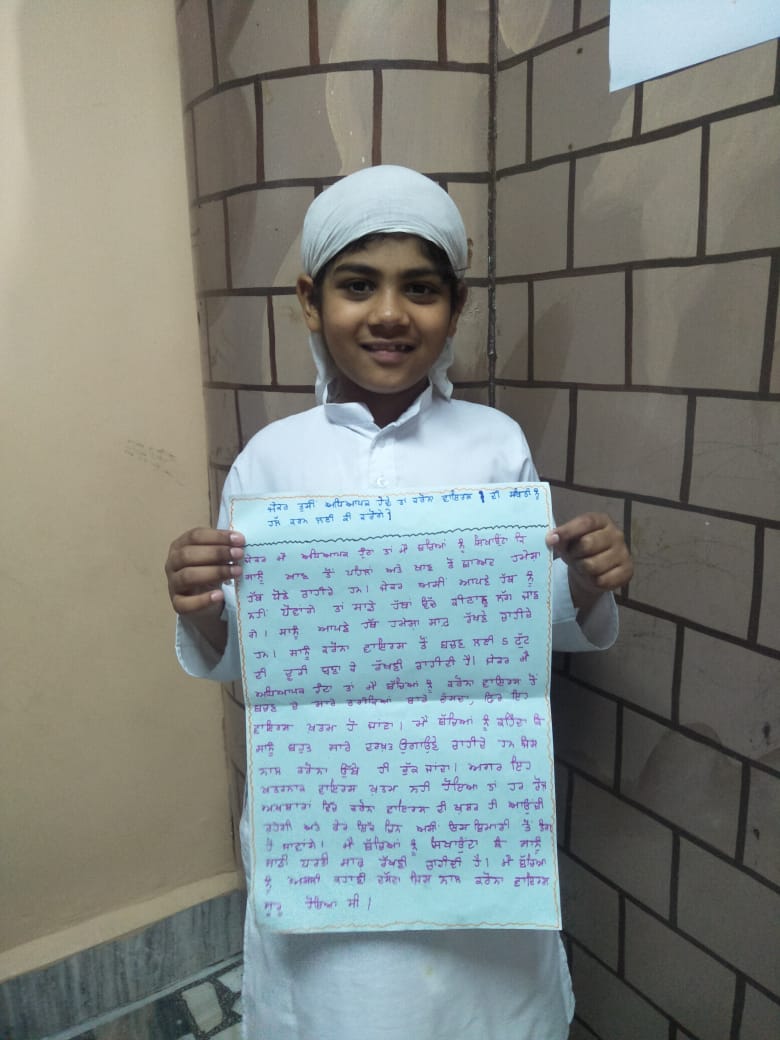 ਜੇਕਰ ਤੁਸੀਂ ਅਧਿਆਪਕ ਹੁੰਦੇ ਤਾਂ ਕਰੋਨਾ ਵਾਇਰਸ ਦੀ ਸਥਿਤੀ ਨੂੰ
ਹੱਲ ਕਰਨ ਲਈ ਕੀ ਕਰੋਗੇ?
ਜੇਕਰ ਮੈਂ ਅਧਿਆਪਕ ਹੁੰਦਾ ਤਾਂ ਮੈਂ ਬੱਚਿਆਂ ਨੂੰ ਸਿਖਾਉਂਦਾ ਕਿ
ਸਾਨੂੰ ਖਾਣ ਤੋਂ ਪਹਿਲਾਂ ਅਤੇ ਖਾਣ ਤੋਂ ਬਾਅਦ ਹਮੇਸ਼ਾ
ਹੱਥ ਧੋਣੇ ਚਾਹੀਦੇ ਹਨ। ਜੇਕਰ ਅਸੀਂ ਆਪਣੇ ਹੱਥ ਨੂੰ
ਨਹੀਂ ਧੋਵਾਂਗੇ ਤਾਂ ਸਾਡੇ ਹੱਥਾਂ ਵਿੱਚ ਕੀਟਾਣੂ ਲੱਗ ਜਾਣ
ਗੇ। ਸਾਨੂੰ ਆਪਣੇ ਹੱਥ ਹਮੇਸ਼ਾ ਸਾਫ਼ ਰੱਖਣੇ ਚਾਹੀਦੇ
ਹਨ। ਸਾਨੂੰ ਕਰੋਨਾ ਵਾਇਰਸ ਤੋਂ ਬਚਣ ਲਈ 5 ਫੁੱਟ
ਦੀ ਦੂਰੀ ਬਣਾ ਕੇ ਰੱਖਣੀ ਚਾਹੀਦੀ ਹੈ। ਜੇਕਰ ਮੈਂ
ਅਧਿਆਪਕ ਹੁੰਦਾ ਤਾਂ ਮੈਂ ਬੱਚਿਆਂ ਨੂੰ ਕਰੋਨਾ ਵਾਇਰਸ ਤੋਂ
ਬਚਣ ਦੇ ਸਾਰੇ ਤਰੀਕਿਆਂ ਬਾਰੇ ਦੱਸਦਾ, ਫਿਰ ਇਹ
ਵਾਇਰਸ ਖ਼ਤਮ ਹੋ ਜਾਂਦਾ। ਮੈਂ ਬੱਚਿਆਂ ਨੂੰ ਕਹਿੰਦਾ ਕਿ
ਸਾਨੂੰ ਬਹੁਤ ਸਾਰੇ ਦਰਖ਼ਤ ਉਗਾਉਣੇ ਚਾਹੀਦੇ ਹਨ ਜਿਸ
ਨਾਲ ਕਰੋਨਾ ਉੱਥੇ ਹੀ ਰੁੱਕ ਜਾਂਦਾ। ਅਗਰ ਇਹ
ਖ਼ਤਰਨਾਕ ਵਾਇਰਸ ਖ਼ਤਮ ਨਹੀਂ ਹੋਇਆ ਤਾਂ ਹਰ ਰੋਜ਼
ਅਖਬਾਰਾਂ ਵਿੱਚ ਕਰੋਨਾ ਵਾਇਰਸ ਦੀ ਖ਼ਬਰ ਹੀ ਆਉਂਦੀ
ਰਹੇਗੀ ਅਤੇ ਫੇਰ ਇੱਕ ਦਿਨ ਅਸੀਂ ਇਸ ਬਿਮਾਰੀ ਤੋਂ
ਹੋ ਜਾਵਾਂਗੇ। ਮੈਂ ਬੱਚਿਆਂ ਨੂੰ ਸਿਖਾਉਂਦਾ ਕਿ ਸਾਨੂੰ
ਸਾਡੀ ਧਰਤੀ ਸਾਫ਼ ਰੱਖਣੀ ਚਾਹੀਦੀ ਹੈ। ਮੈਂ ਬੱਚਿਆਂ
ਨੂੰ ਅਸਲੀ ਕਹਾਣੀ ਦੱਸਦਾ ਜਿਸ ਨਾਲ ਕਰੋਨਾ ਵਾਇਰਸ
ਸ਼ੁਰੂ ਹੋਇਆ ਸੀ।